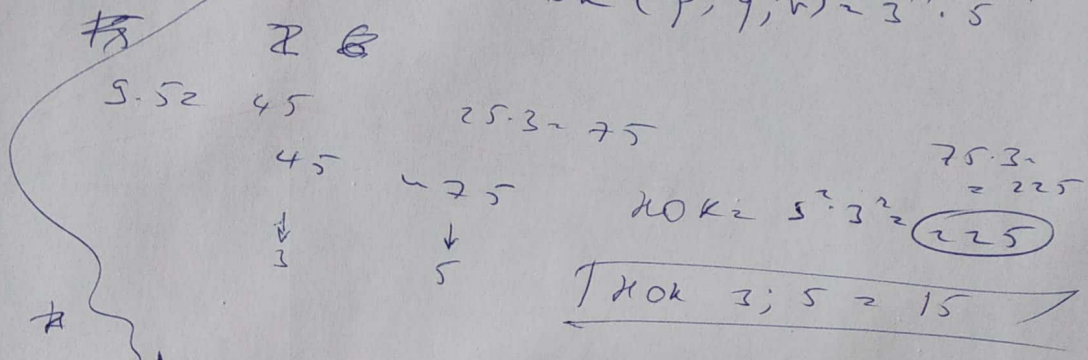 (p, q, r) = 3 · 5
9·5=45
25·3=75
45
~75
75·3=
=225
НОК= 5²·3²=
=225
3
5
НОК 3; 5 = 15